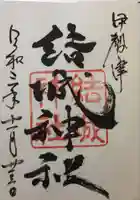 伊勢津
結城神社
令和二年十一月廿三日